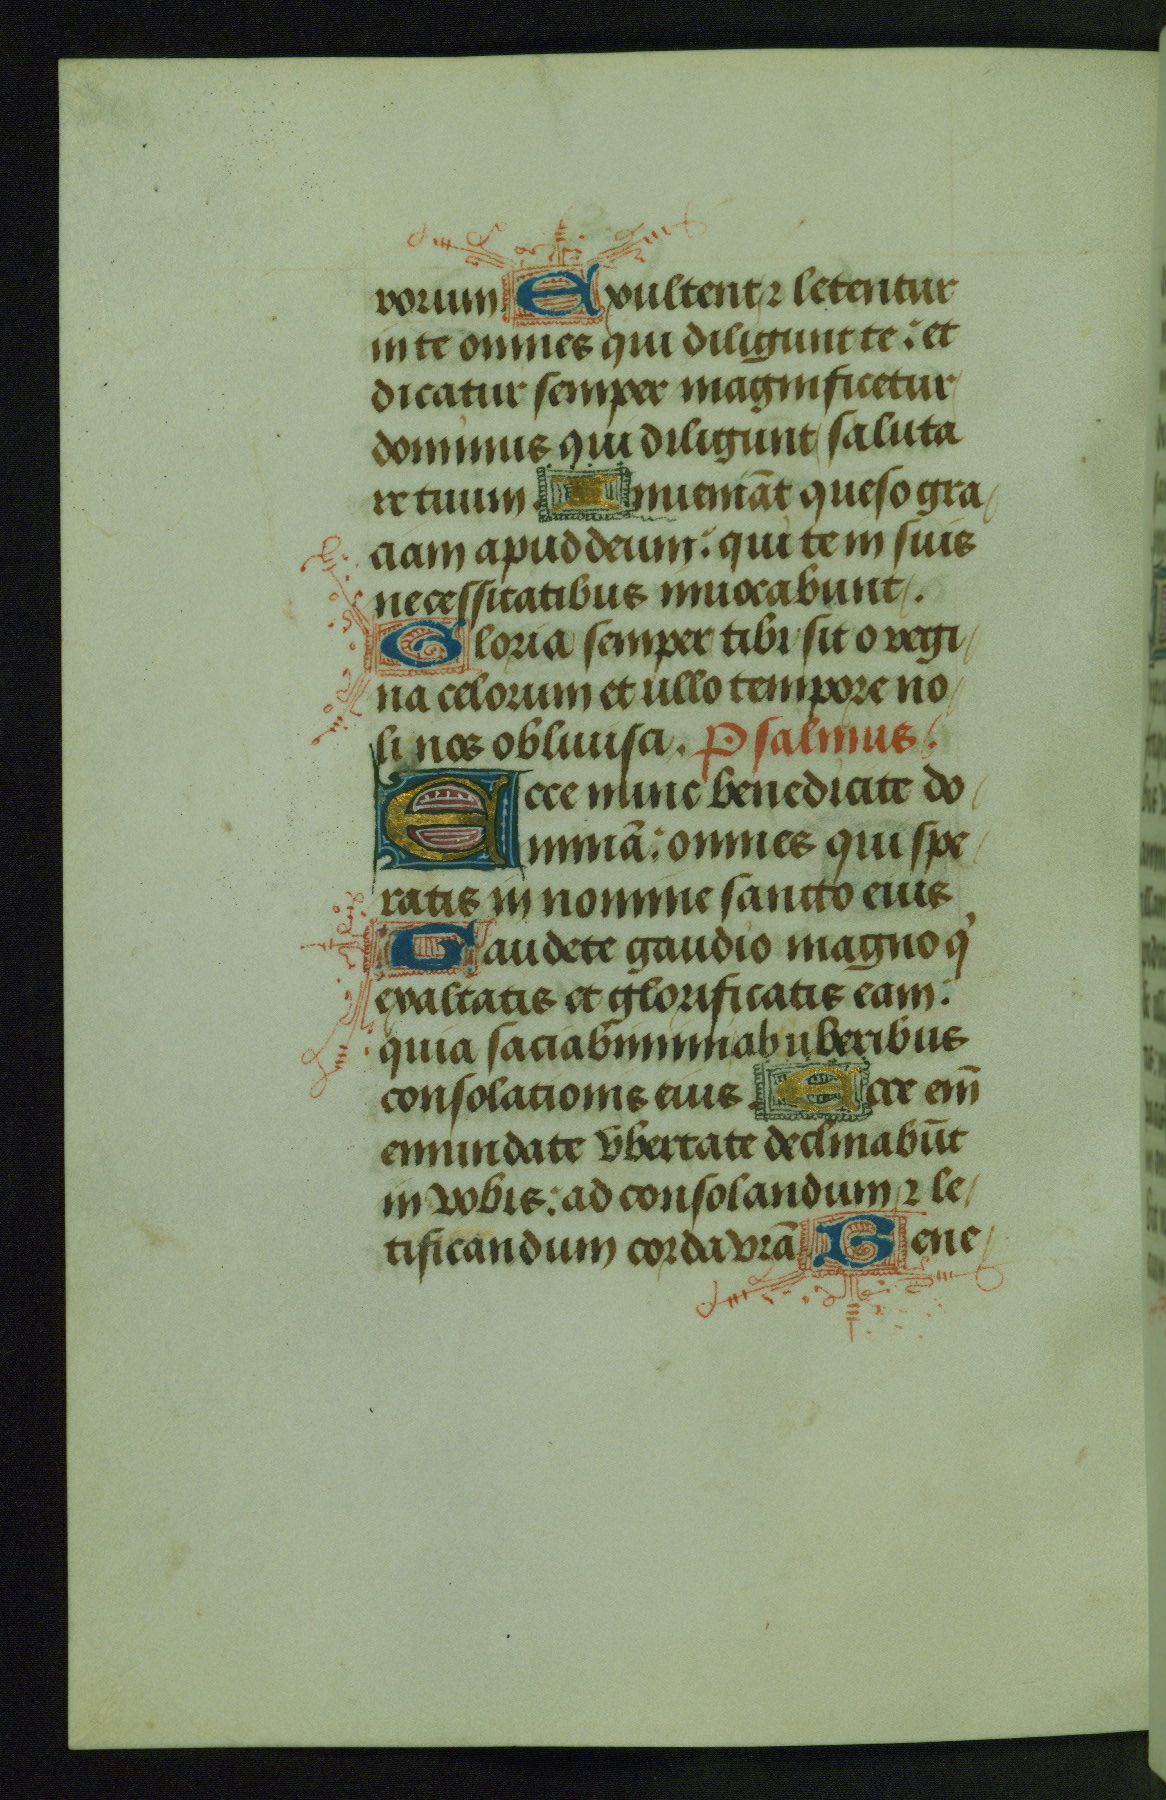 vorum Exultent ⁊ letentur
in te omnes qui diligunt te : et
dicatur semper magnificetur
dominus qui diligunt saluta
re tuum . Inueniāt queso gra
ciam apud deum : qui te in suis
necessitatibus inuocabunt .
Gloria semper tibi sit o regi
na celorum et ullo tempore no
li nos obliuisci . Psalmus .
Ecce nunc benedicite do
minā : omnes qui spe
ratis in nomine sancto eius
Gaudete gaudio magno q'
exaltatis et glorificatis eam :
quia saciabimini ab uberibus
consolationis eius . Ecce em̄
emundate vbertate declinabūt
in vobis : ad consolandum ⁊ le
tificandum corda vrā Gene